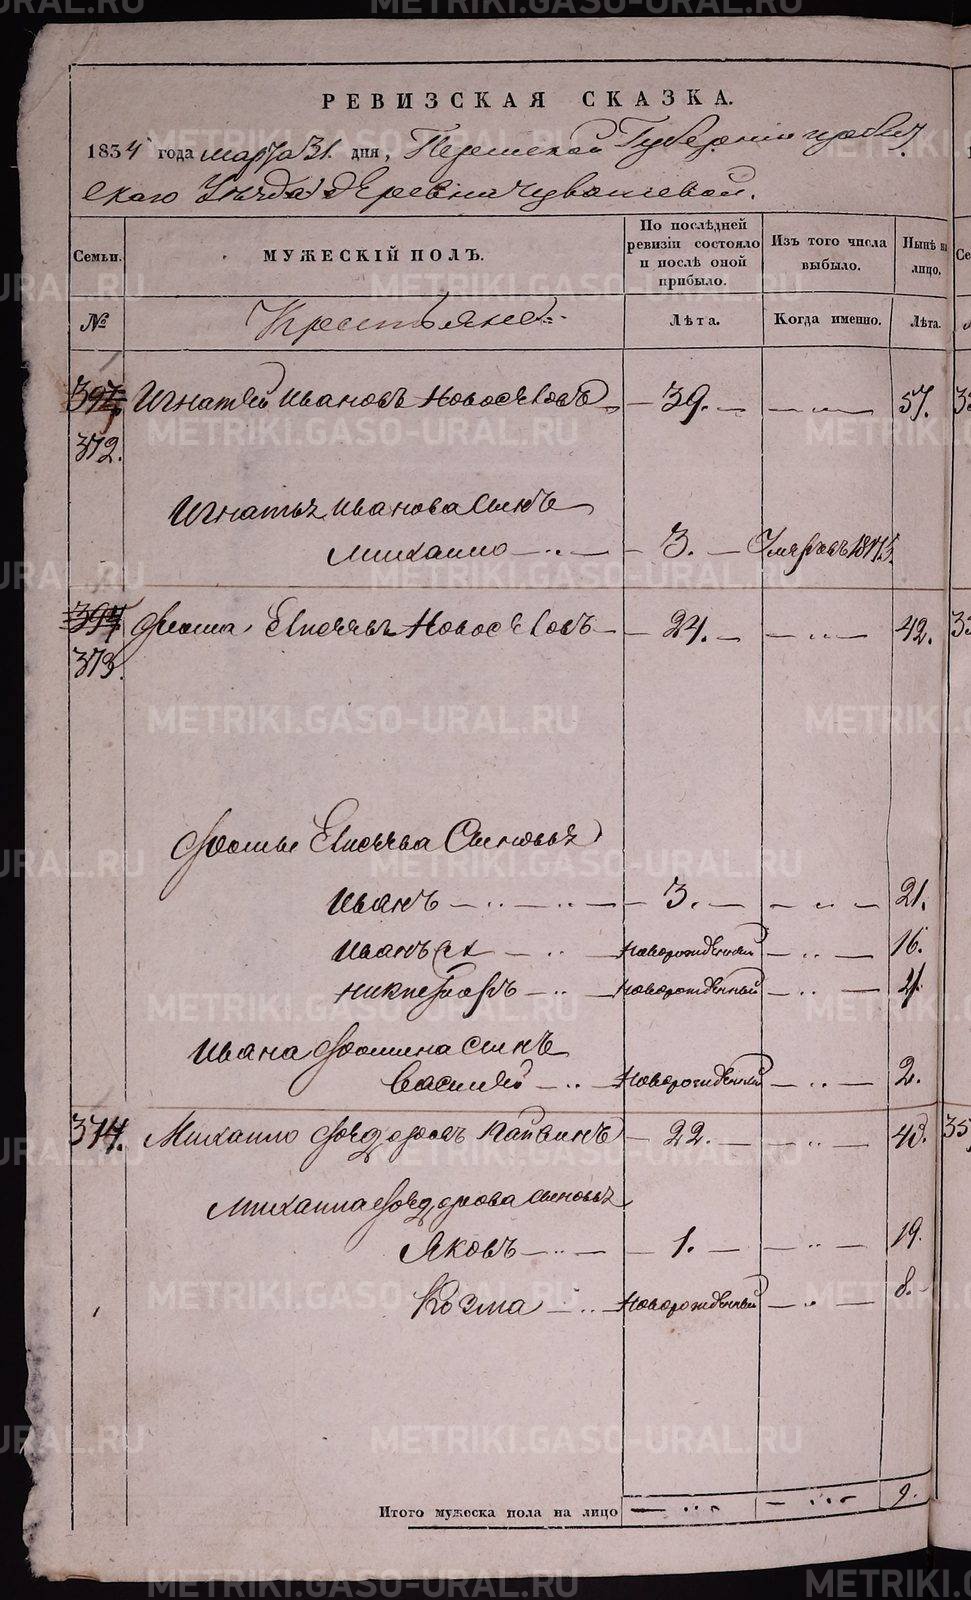 РЕВИЗСКАЯ СКАЗКА.
1834 года марта 31. дня, Пермской Губернии Ирбит
скаго Уѣзда деревни Чувашевой.
Семьи. МУЖЕСКІЙ ПОЛЪ. По послѣдней ревизіи состояло и послѣ оной прибыло. Изъ того числа выбыло. Нынѣ на лицо,
№ Крестьяне Лѣта. Когда именно. Лѣта.
Игнатей Ивановъ Новосѣловъ 39. 57.
372.
Игнатья Иванова сынъ
Михаило 3. Умеръ въ
Фома Елисеевъ Новосѣловъ 24. 42.
373.
Фомы Елисеева Сыновья
Иванъ 3. 21.
Иванъ новорожденный 16.
Никифоръ новорожденный 4.
Ивана Фомина сынъ
Василей новорожденный 2.
374. Михаило Федоровъ 22. 40.
Михаила Федорова сыновья
Яковъ 1. 19.
Козма новорожденный 8.
Итого мужеска пола на лицо 9.
METRIKI.GASO-URAL.RU